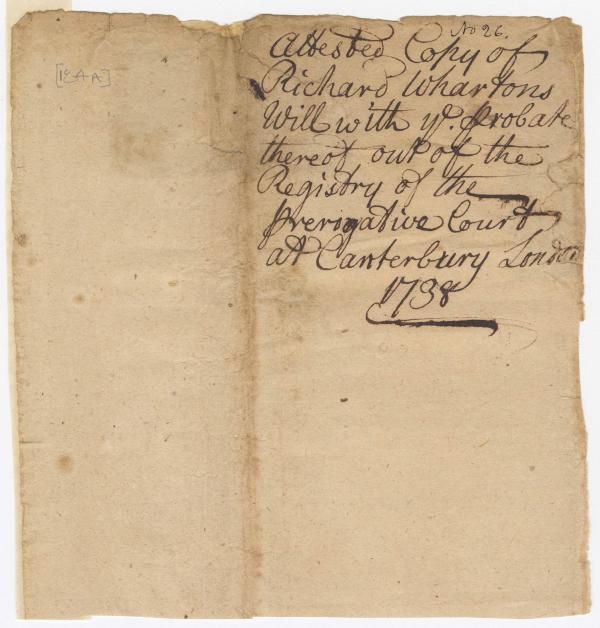 No 26.
[124A]
Attested Copy of
Richard Whartons
Will with ye. Probate
thereof out of the
Registry of the
Prerogative Court
at Canterbury London
1738